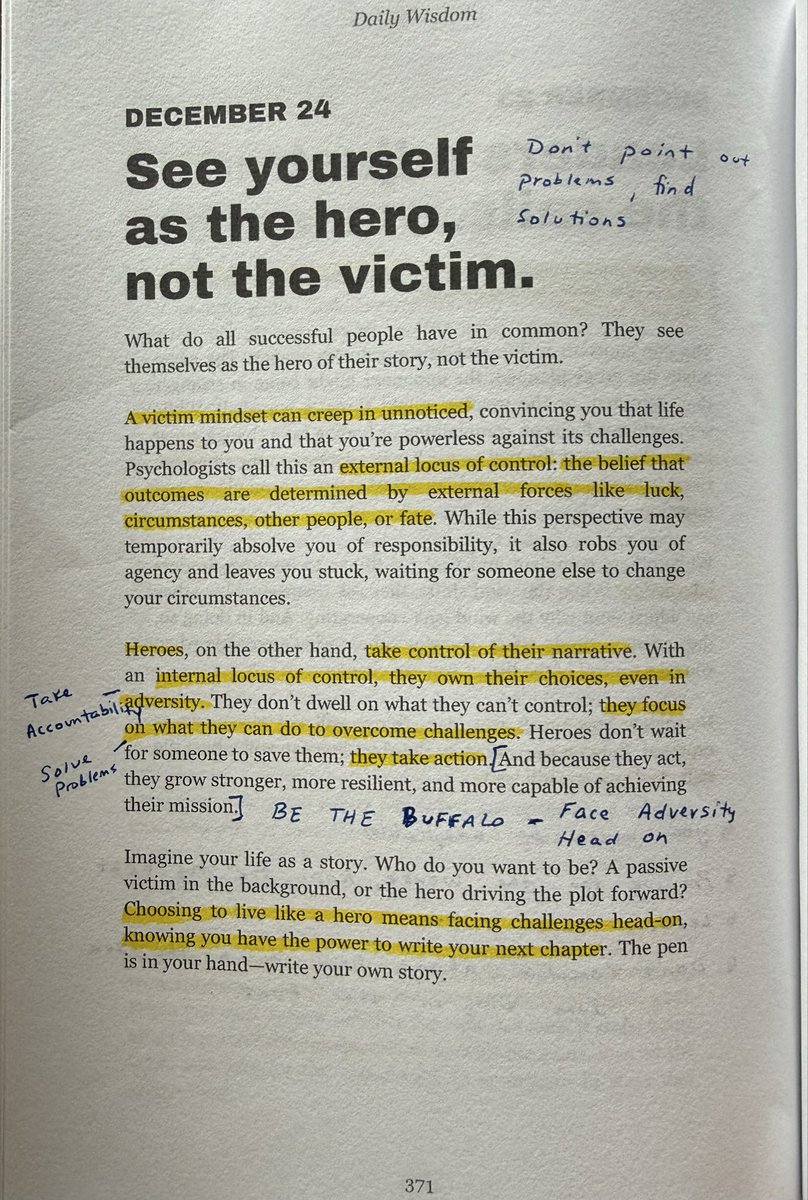 Daily Wisdom
DECEMBER 24
See yourself
as the hero,
not the victim.
Don't point out
problems, find
solutions
What do all successful people have in common? They see
themselves as the hero of their story, not the victim.
A victim mindset can creep in unnoticed, convincing you that life
happens to you and that you're powerless against its challenges.
Psychologists call this an external locus of control: the belief that
outcomes are determined by external forces like luck,
circumstances, other people, or fate. While this perspective may
temporarily absolve you of responsibility, it also robs you of
agency and leaves you stuck, waiting for someone else to change
your circumstances.
Heroes, on the other hand, take control of their narrative. With
an internal locus of control, they own their choices, even in
adversity. They don't dwell on what they can't control; they focus
on what they can do to overcome challenges. Heroes don't wait
for someone to save them; they take action. [And because they act,
they grow stronger, more resilient, and more capable of achieving
their mission.]
Take
Accountability
Solve
Problems
BE THE BUFFALO - Face Adversity
Head on
Imagine your life as a story. Who do you want to be? A passive
victim in the background, or the hero driving the plot forward?
Choosing to live like a hero means facing challenges head-on,
knowing you have the power to write your next chapter. The pen
is in your hand—write your own story.
371